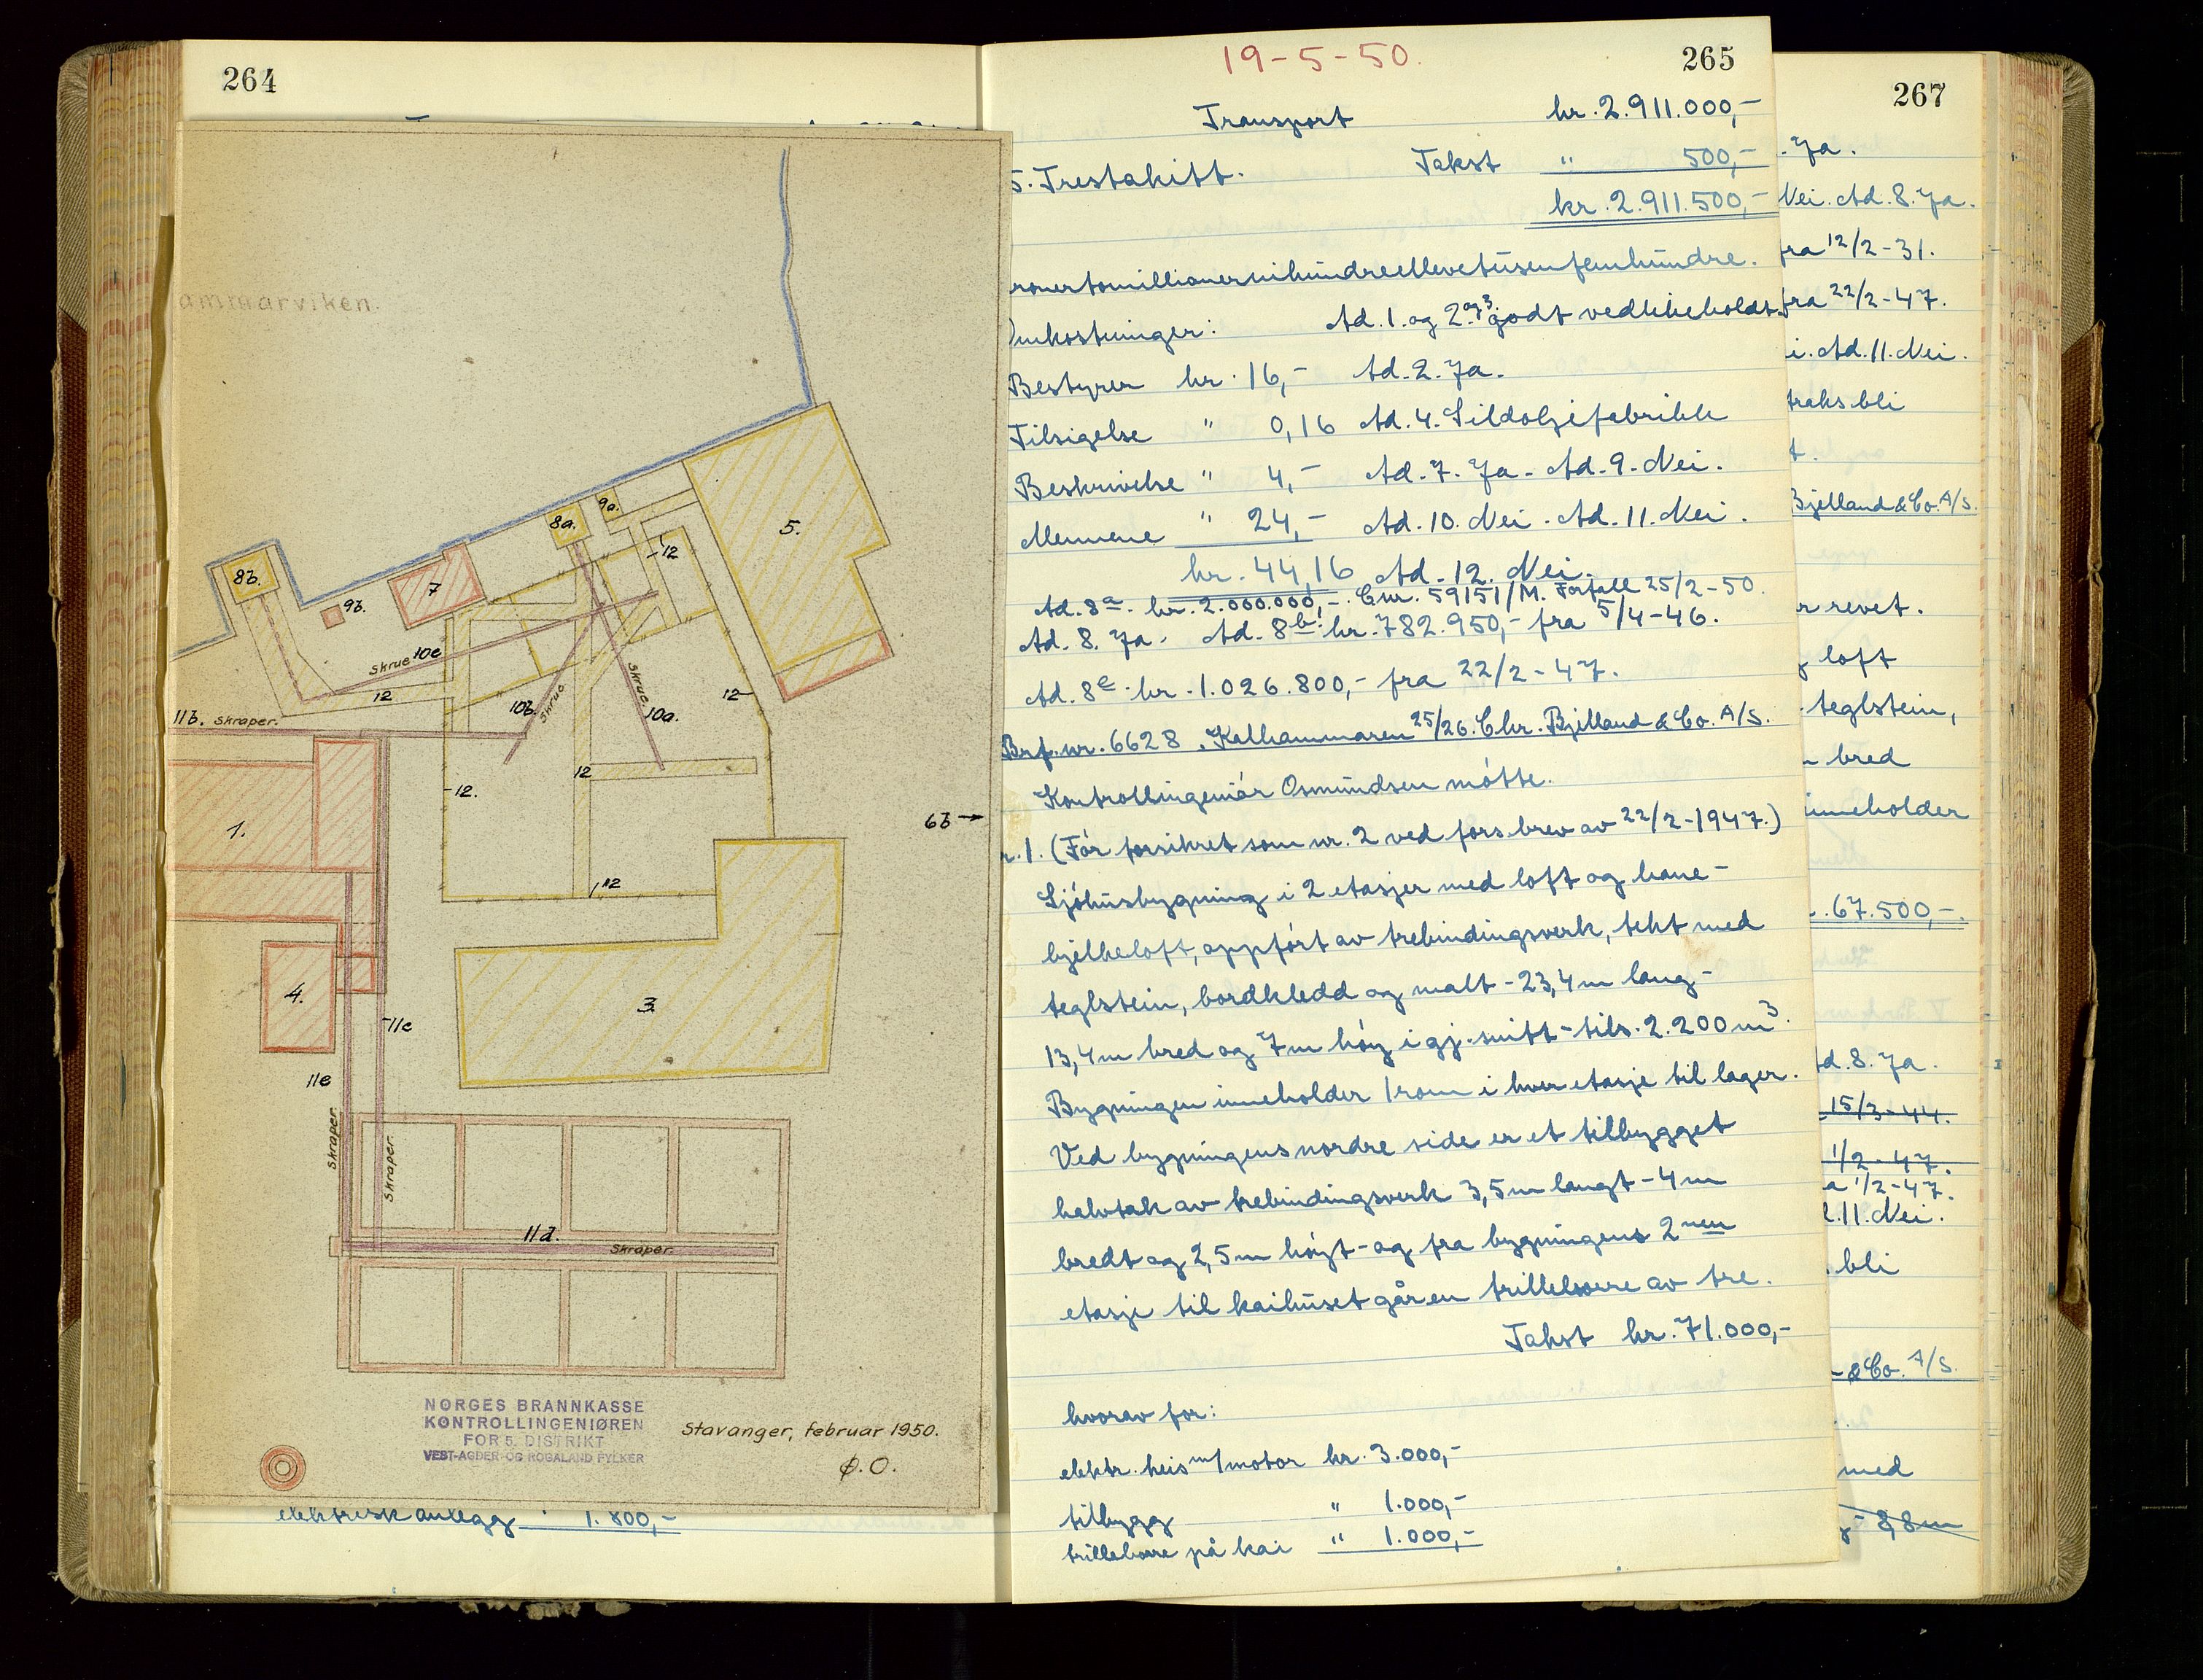 264
ammarviken.
8b.
9b.
7
8a.
9a.
12
5.
Skrue 10c
12
11b. Skraper.
10b.
Skrue
Skrue
10a.
12
12.
12
12
1.
6b →
3.
4.
11c
11e
Skraper.
Skraper.
11d.
Skraper.
NORGES BRANNKASSE
KONTROLLINGENIØREN
FOR 5. DISTRIKT
VEST-AGDER OG ROGALAND FYLKER
Stavanger, februar 1950.
Ø.O.
elektrisk anlegg " 1.800,-
19-5-50.
265
Transport kr. 2.911.000,-
5. Trestakitt. Takst " 500,-
kr. 2.911.500,-
ronertomillionernihundreellevetusenfemhundre.
mkostninger: Ad. 1. og 2. og 3. godt vedlikeholdt.
Bestyrer kr. 16,- Ad. 2. Ja.
Tilsigelse " 0,16 Ad. 4. Sildoljefabrikk
Beskrivelse " 4,- Ad. 7. Ja. Ad. 9. Nei.
Mennene " 24,- Ad. 10. Nei. Ad. 11. Nei.
kr. 44,16 Ad. 12. Nei.
Ad. 8a. kr. 2.000.000,-. Cnr. 59151/M. Forfall 25/2-50.
Ad. 8. Ja. Ad. 8b: kr. 782.950,- fra 5/4-46.
Ad. 8c. kr. 1.026.800,- fra 22/2-47.
Brf.nr. 6628. Kalhammaren 25/26. Chr. Bjelland & Co. A/S.
Kontrollingeniör Osmundsen mötte.
r. 1. (För forsikret som nr. 2 ved fors.brev av 22/2-1947.)
Sjöhusbygning i 2 etasjer med loft og hane-
bjelkeloft, oppfört av trebindingsverk, tekt med
teglstein, bordkledd og malt - 23,4 m lang -
13,4 m bred og 7 m höy i gj.snitt - tils. 2.200 m3.
Bygningen inneholder 1 rom i hver etasje til lager.
Ved bygningens nordre side er et tilbygget
halvtak av trebindingsverk 3,5 m langt - 4 m
bredt og 2,5 m höyt - og fra bygningens 2nen
etasje til kaihuset går en trilleborre av tre.
Takst kr. 71.000,-
hvorav for:
elektr. heis m/motor kr. 3.000,-
tilbygg " 1.000,-
trilleborre på kai " 1.000,-
267
. Ja.
Nei. Ad. 8. Ja.
fra 12/2-31.
fra 22/2-47.
i. Ad. 11. Nei.
traks bli
t.
Bjelland & Co. A/S.
r revet.
loft
teglstein,
bred
inneholder
. 67.500,-.
d. 8. Ja.
15/3-44.
1/2-47.
a 1/2-47.
l. 11. Nei.
. bli
& Co. A/S.
med
- 8,8 m